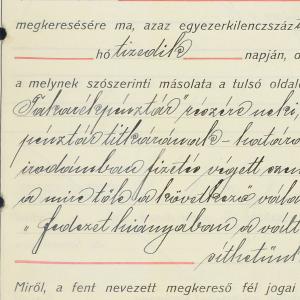 megkeresésére ma, azaz egyezerkilenczszáz
hó tizedik napján, d
a melynek szószerinti másolata a tulsó oldalo
Takarékpénztár részére neki,
pénztár titkárának - határo
irodámban fizetés végett szem
a mire tőle a következő vála
„fedezet hiányában a vált
síthetünk
Miről, a fent nevezett megkereső fél jogai